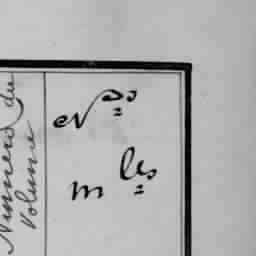 Numéro du
Volume
Nos
mles